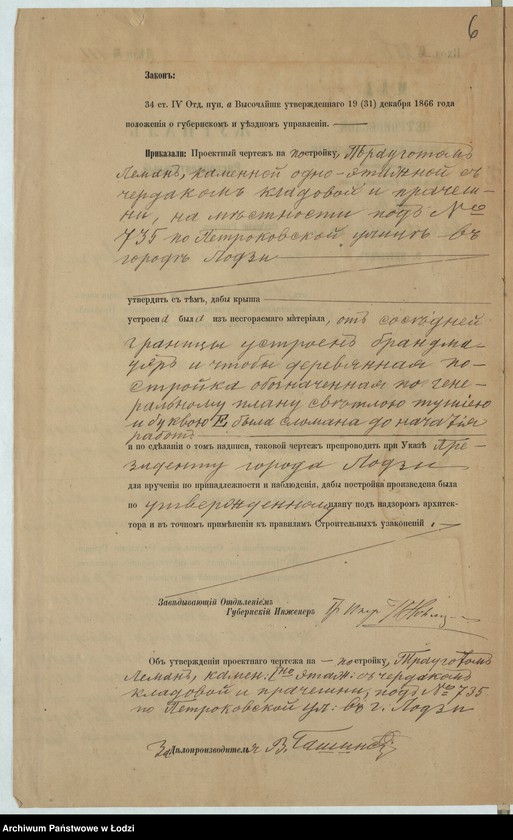 6
Законъ:
34 ст. IV Отд. пун. а Высочайше утвержденнаго 19 (31) декабря 1866 года
положенія о губернскомъ и уѣздномъ управленіи.
Приказали: Проектный чертежъ на постройку, ТраугоTомъ
Леманъ, каменной одно-этажной съ
чердакомъ кладовой и прачеш-
ни, на мѣстности подъ №
735 по Петроковской улицѣ въ
городѣ Лодзи
утвердить съ тѣмъ, дабы крыша
устроена была изъ несгораемаго матеріала, отъ сосѣдней
границы устроенъ брандма-
уэръ и чтобы деревянная по-
стройка обозначенная по гене-
ральному плану свѣтлою тушью
и буквою Е, была сломана до начатія
работъ
и по сдѣланіи о томъ надписи, таковой чертежъ препроводить при Указѣ Пре-
зиденту города Лодзи
для врученія по принадлежности и наблюденія, дабы постройка произведена была
по утвержденному плану подъ надзоромъ архитек-
тора и въ точномъ примѣненіи къ правиламъ Строительныхъ узаконеній.
Завѣдывающій Отдѣленіемъ
Губернскій Инженеръ
Объ утвержденіи проектнаго чертежа на постройку, Трауготомъ
Леманъ, камен: 1но этаж: съ чердакомъ
кладовой и прачешни, подъ № 735
по Петроковской ул: въ г. Лодзи
За Дѣлопроизводителя В.
Archiwum Państwowe w Łodzi